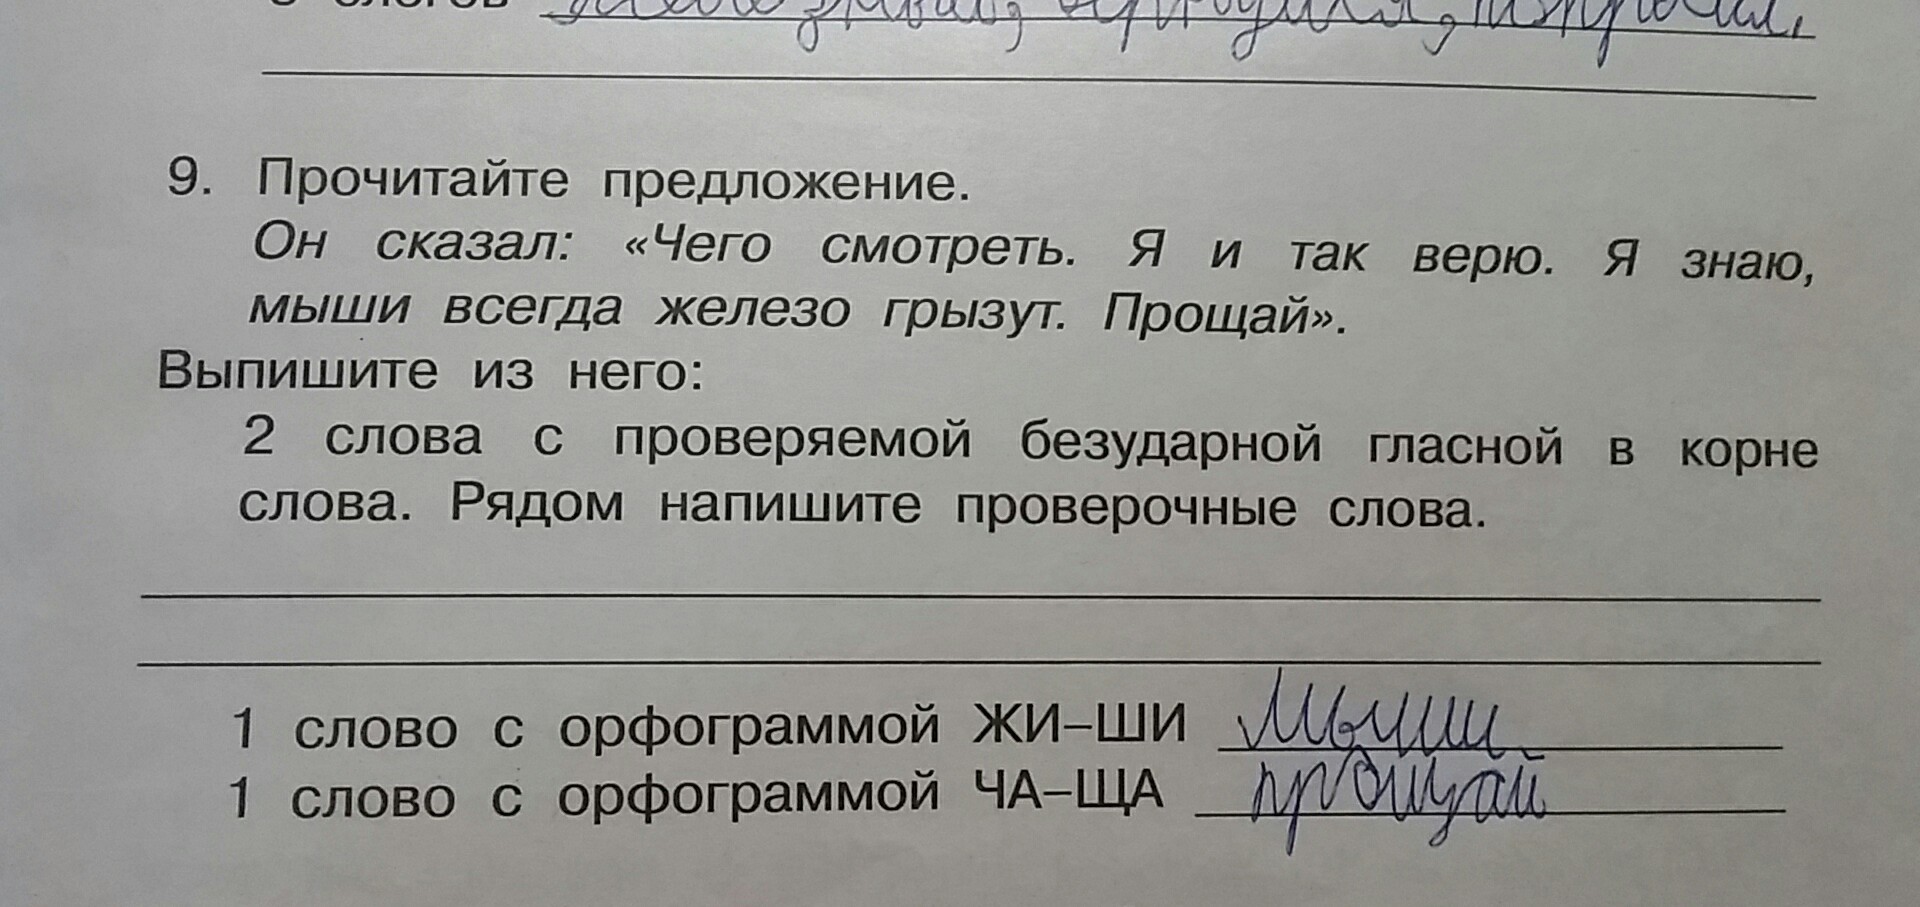 слогов
9. Прочитайте предложение.
Он сказал: «Чего смотреть. Я и так верю. Я знаю,
мыши всегда железо грызут. Прощай».
Выпишите из него:
2 слова с проверяемой безударной гласной в корне
слова. Рядом напишите проверочные слова.
1 слово с орфограммой ЖИ–ШИ Мыши
1 слово с орфограммой ЧА–ЩА прощай